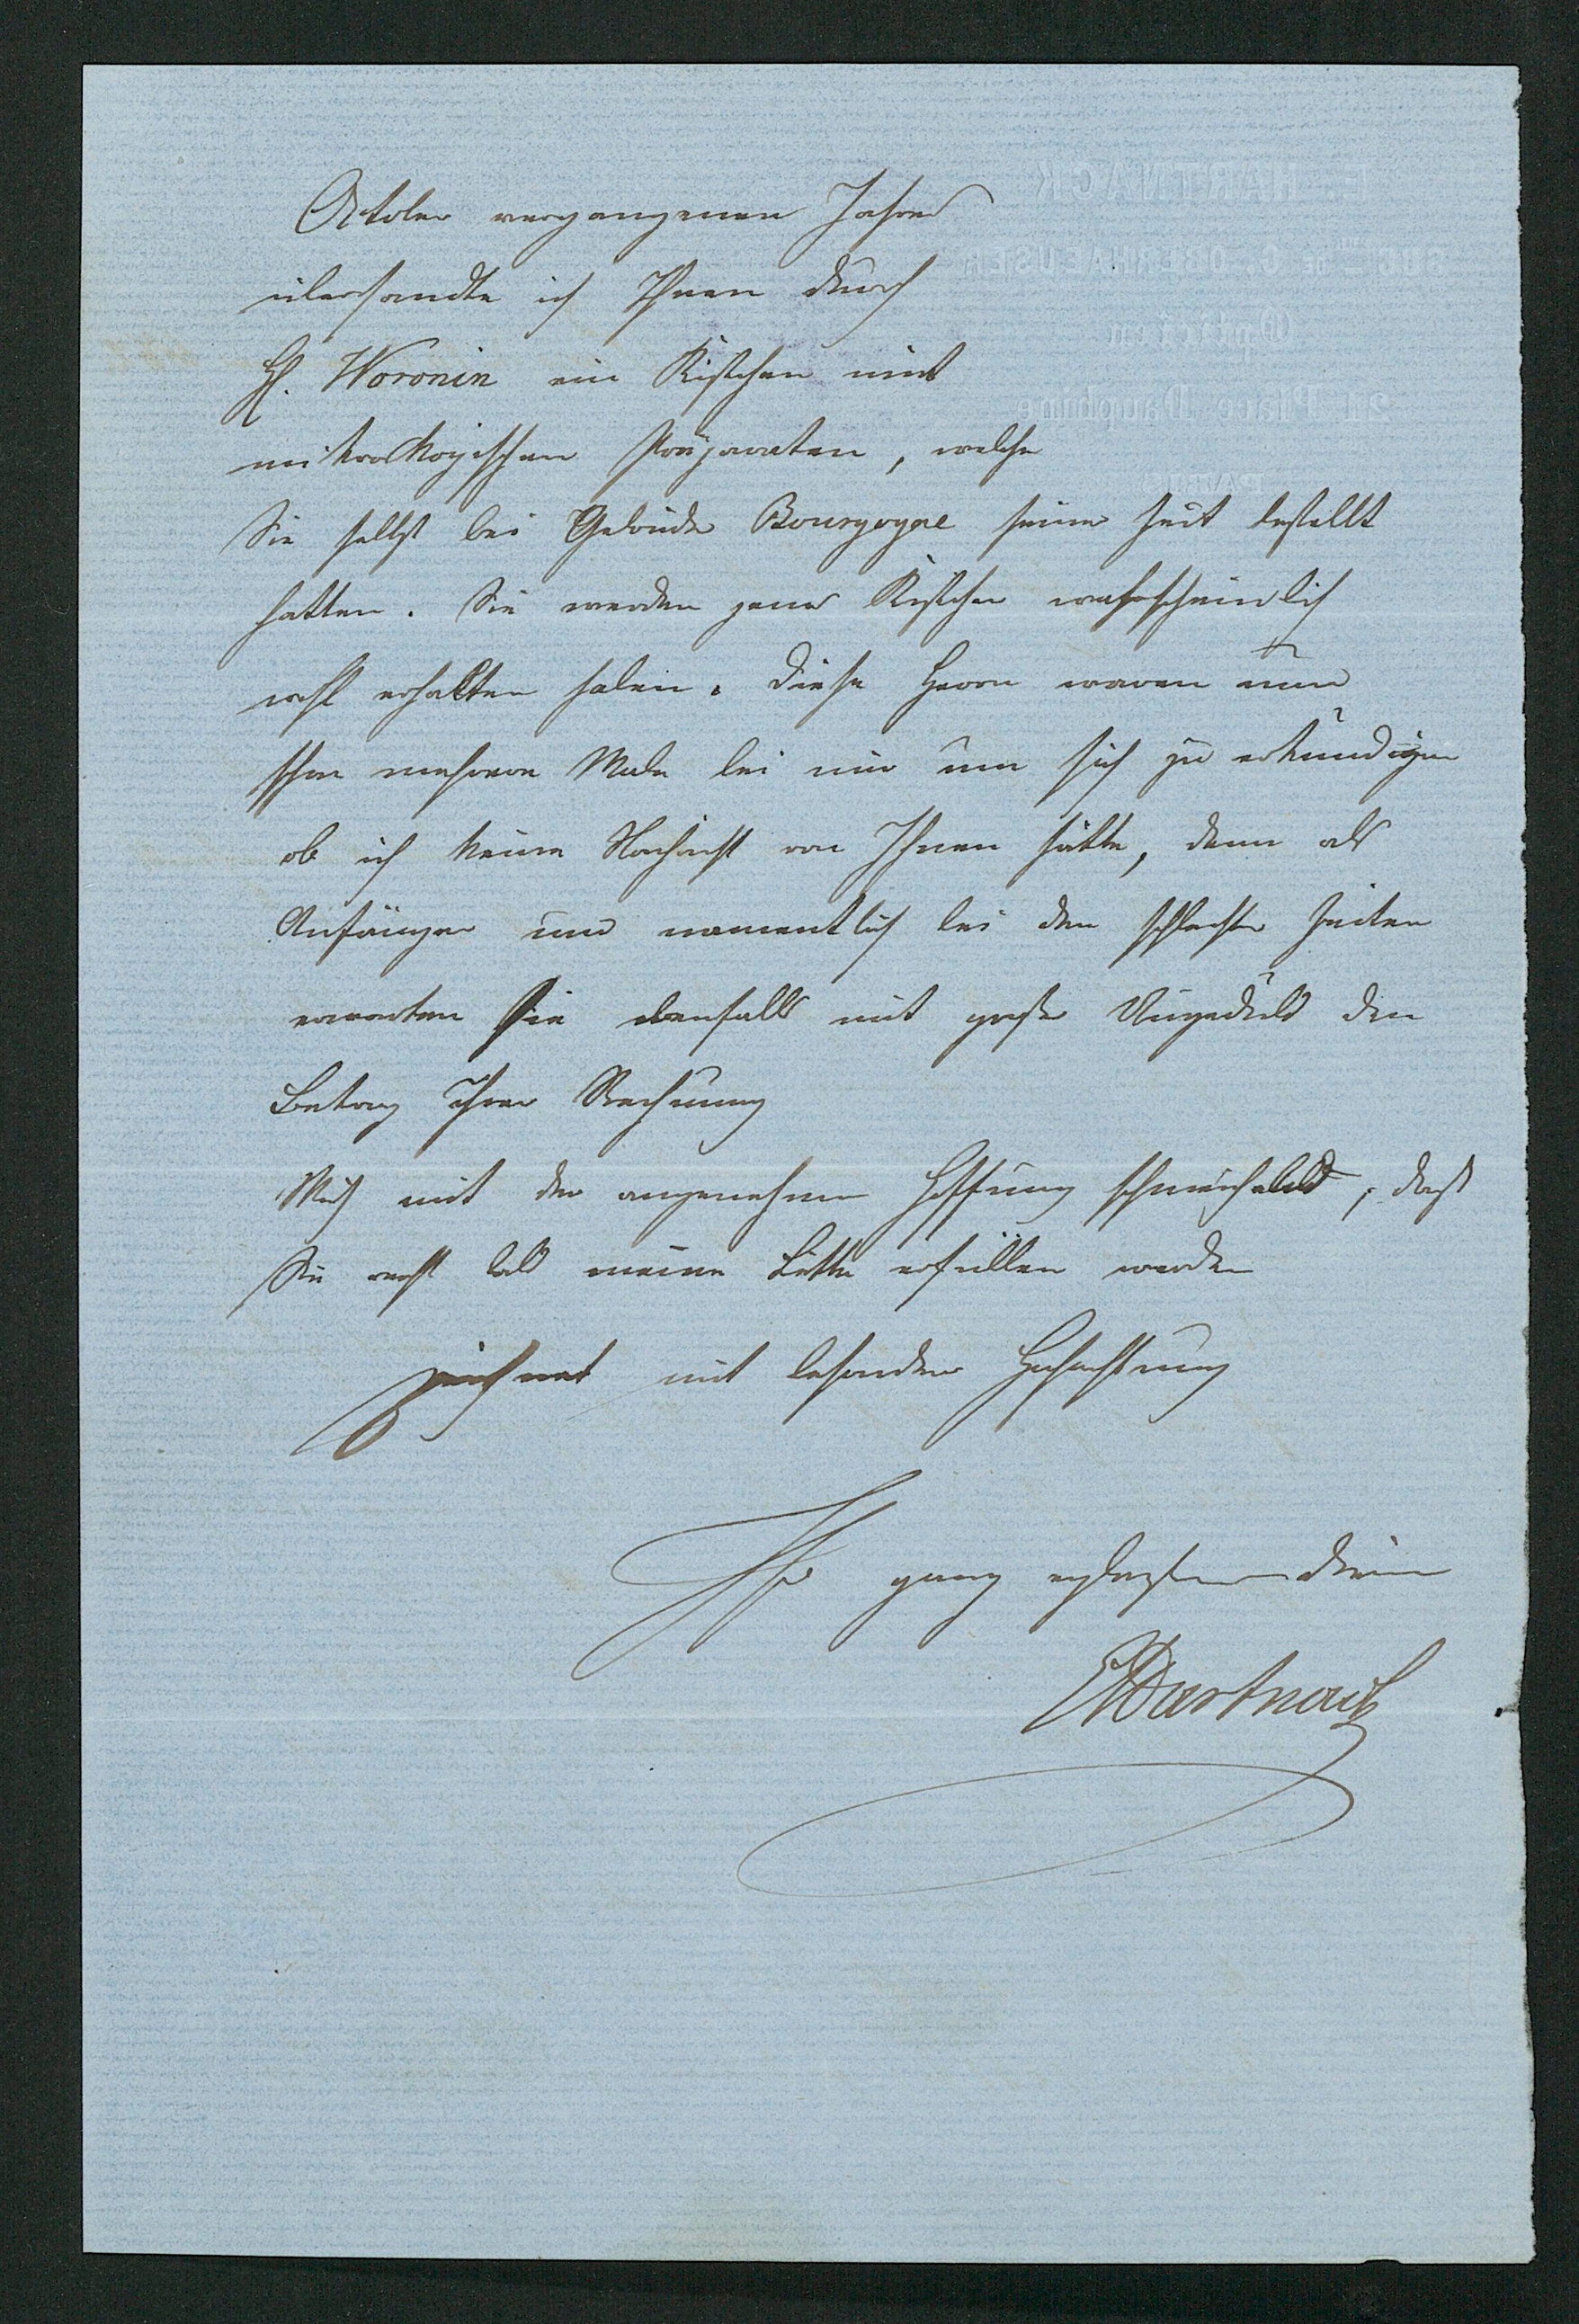 October vergangenen Jahres
übersandte ich Ihnen durch
H. Woronin ein Kistchen mit
mikroskopischen Präparaten, welche
Sie selbst bei Gebrüder Bourgogne seiner Zeit bestellt
hatten. Sie werden jenes Kistchen wahrscheinlich
wohl erhalten haben. Diese Herrn waren nun
schon mehrere Male bei mir um sich zu erkundigen
ob ich keine Nachricht von Ihnen hätte, denn als
Anfänger und namentlich bei den schlechten Zeiten
erwarten sie ebenfalls mit großer Ungeduld den
Betrag Ihrer Rechnung
Mich mit der angenehmen Hoffnung schmeichelnd, daß
Sie recht bald meine Bitte erfüllen werden
zeichnet mit besonderer Hochachtung
Ihr ganz ergebenster Diener
EHartnack
E. HARTNACK
DE G. OBERHAEUSER
Opticien
21 Place Dauphine
PARIS